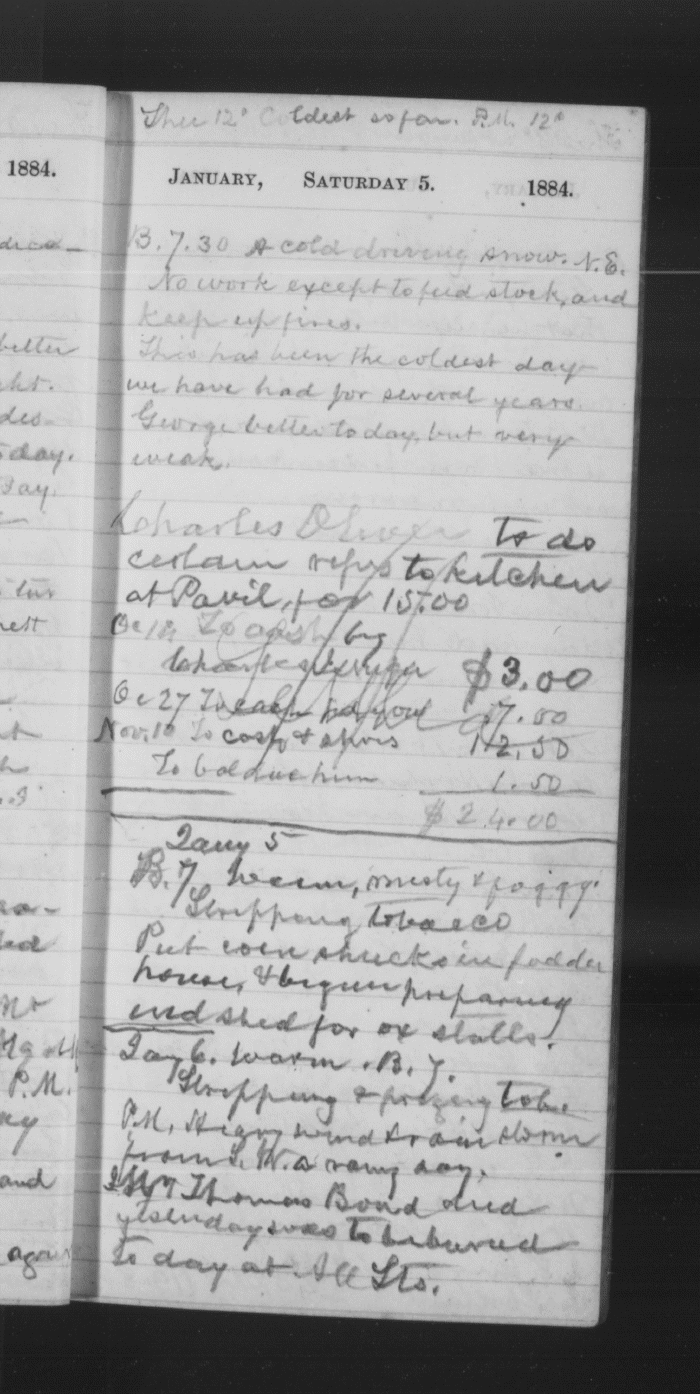 1884.
better
day.
P.M.
and
again
Ther 12° Coldest so far. P.M. 12°
JANUARY, SATURDAY 5. 1884.
B. 7.30 A cold driving snow. N.E.
No work except to feed stock, and
keep up fires.
This has been the coldest day
we have had for several years.
George better today, but very
weak.
Charles Oliver to do
certain repns to kitchen
at Pavil, for 15.00
Oc 18 To cash by
$3.00
Oc 27 To cash 7.00
Nov. 10 To cash & 12.50
To bal due him 1.50
$ 24.00
Jany 5
B. 7 Warm, misty & foggy.
Stripping tobacco
Put corn shucks in fodder
house, & begun preparing
end shed for ox stalls.
Jany 6. Warm. B. 7.
Stripping & prizing tob.
P.M. Heavy wind & rain storm
from S.W. a rainy day.
Thomas Bond died
yesterday & was to be buried
to day at All Sts.